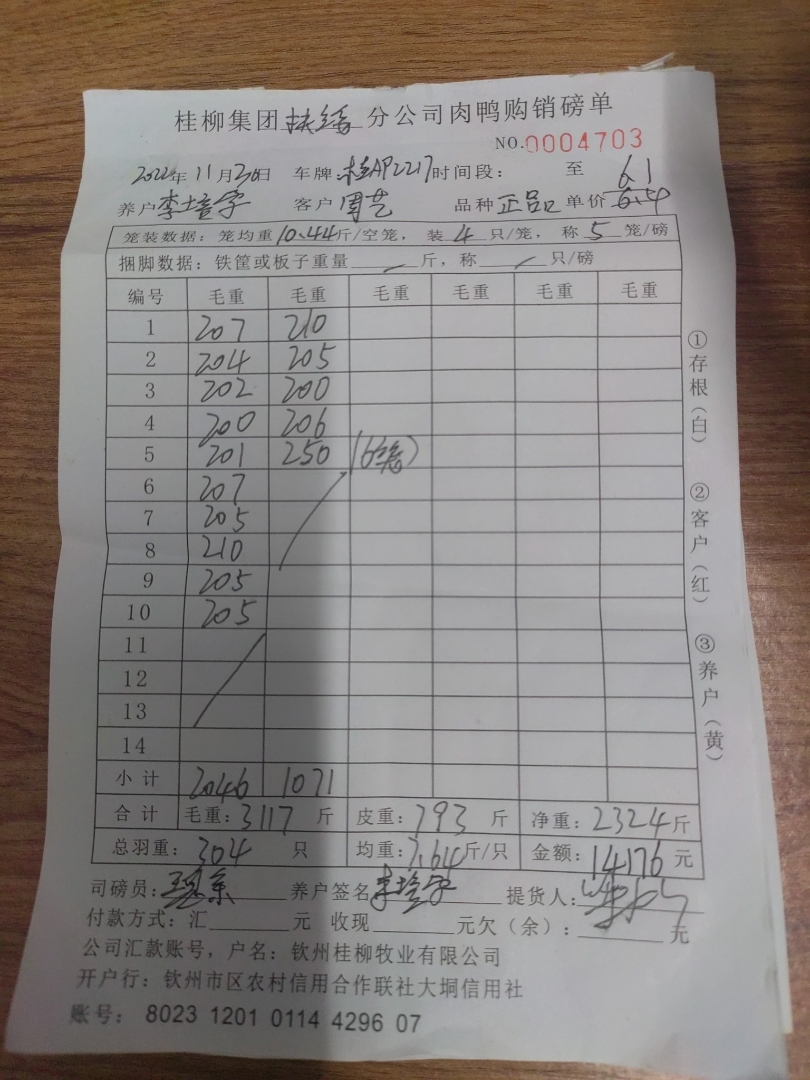 桂柳集团扶绥分公司肉鸭购销磅单
NO.0004703
2022年11月30日 车牌:桂AP2217时间段: 至 6.1
养户李培字 客户周艺 品种正品 单价6.4
笼装数据:笼均重10.44斤/空笼,装4只/笼,称5笼/磅
捆脚数据:铁筐或板子重量 斤,称 只/磅
编号 毛重 毛重 毛重 毛重 毛重 毛重
1 207 210
2 204 205
3 202 200
4 200 206
5 201 250 (6笼)
6 207
7 205
8 210
9 205
10 205
11
12
13
14
小计 2046 1071
合计 毛重:3117斤 皮重:793斤 净重:2324斤
总羽重:304只 均重:7.64斤/只 金额:14176元
司磅员: 养户签名李培字 提货人:
付款方式:汇 元 收现 元欠(余): 元
公司汇款账号,户名:钦州桂柳牧业有限公司
开户行:钦州市区农村信用合作联社大垌信用社
账号: 8023 1201 0114 4296 07
①存根(白)
②客户(红)
③养户(黄)